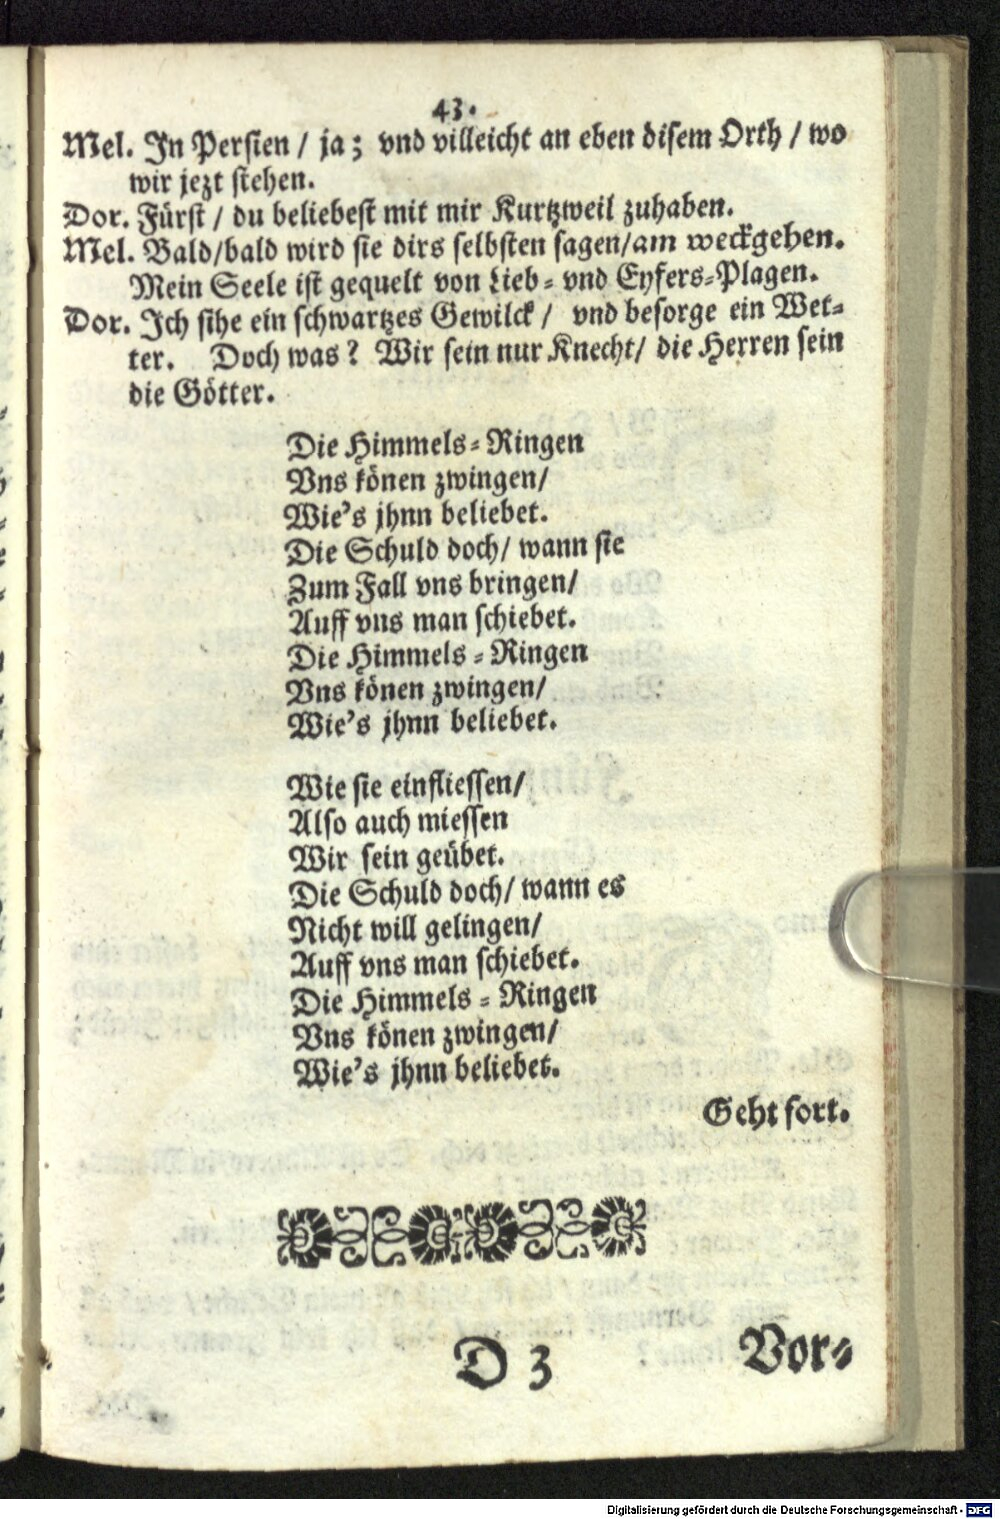 43.
Mel. In Persien / ja; vnd villeicht an eben disem Orth / wo
wir jezt stehen.
Dor. Fürst / du beliebest mit mir Kurtzweil zuhaben.
Mel. Bald/bald wird sie dirs selbsten sagen/am weckgehen.
Mein Seele ist gequelt von Lieb- vnd Eyfers-Plagen.
Dor. Ich sihe ein schwartzes Gewilck / vnd besorge ein Wet-
ter. Doch was? Wir sein nur Knecht/ die Herren sein
die Götter.
Die Himmels-Ringen
Vns könen zwingen/
Wie's jhnn beliebet.
Die Schuld doch/ wann sie
Zum Fall vns bringen/
Auff vns man schiebet.
Die Himmels-Ringen
Vns könen zwingen/
Wie's jhnn beliebet.
Wie sie einfliessen/
Also auch miessen
Wir sein geübet.
Die Schuld doch/ wann es
Nicht will gelingen/
Auff vns man schiebet.
Die Himmels-Ringen
Vns könen zwingen/
Wie's jhnn beliebet.
Geht fort.
D 3
Vor-
Digitalisierung gefördert durch die Deutsche Forschungsgemeinschaft - DFG